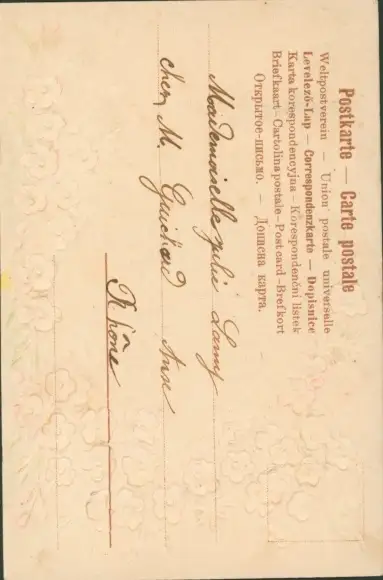 Postkarte — Carte postale
Weltpostverein — Union postale universelle
Levelező-Lap - Correspondenzkarte — Dopisnice
Karta korespondencyjna – Korespondenční listek
Briefkaart – Cartolina postale – Post card – Brefkort
Открытое-письмо. — Дописна карта.
Mademoiselle Julie Lamy
chez M. Guichard Anse
Rhône